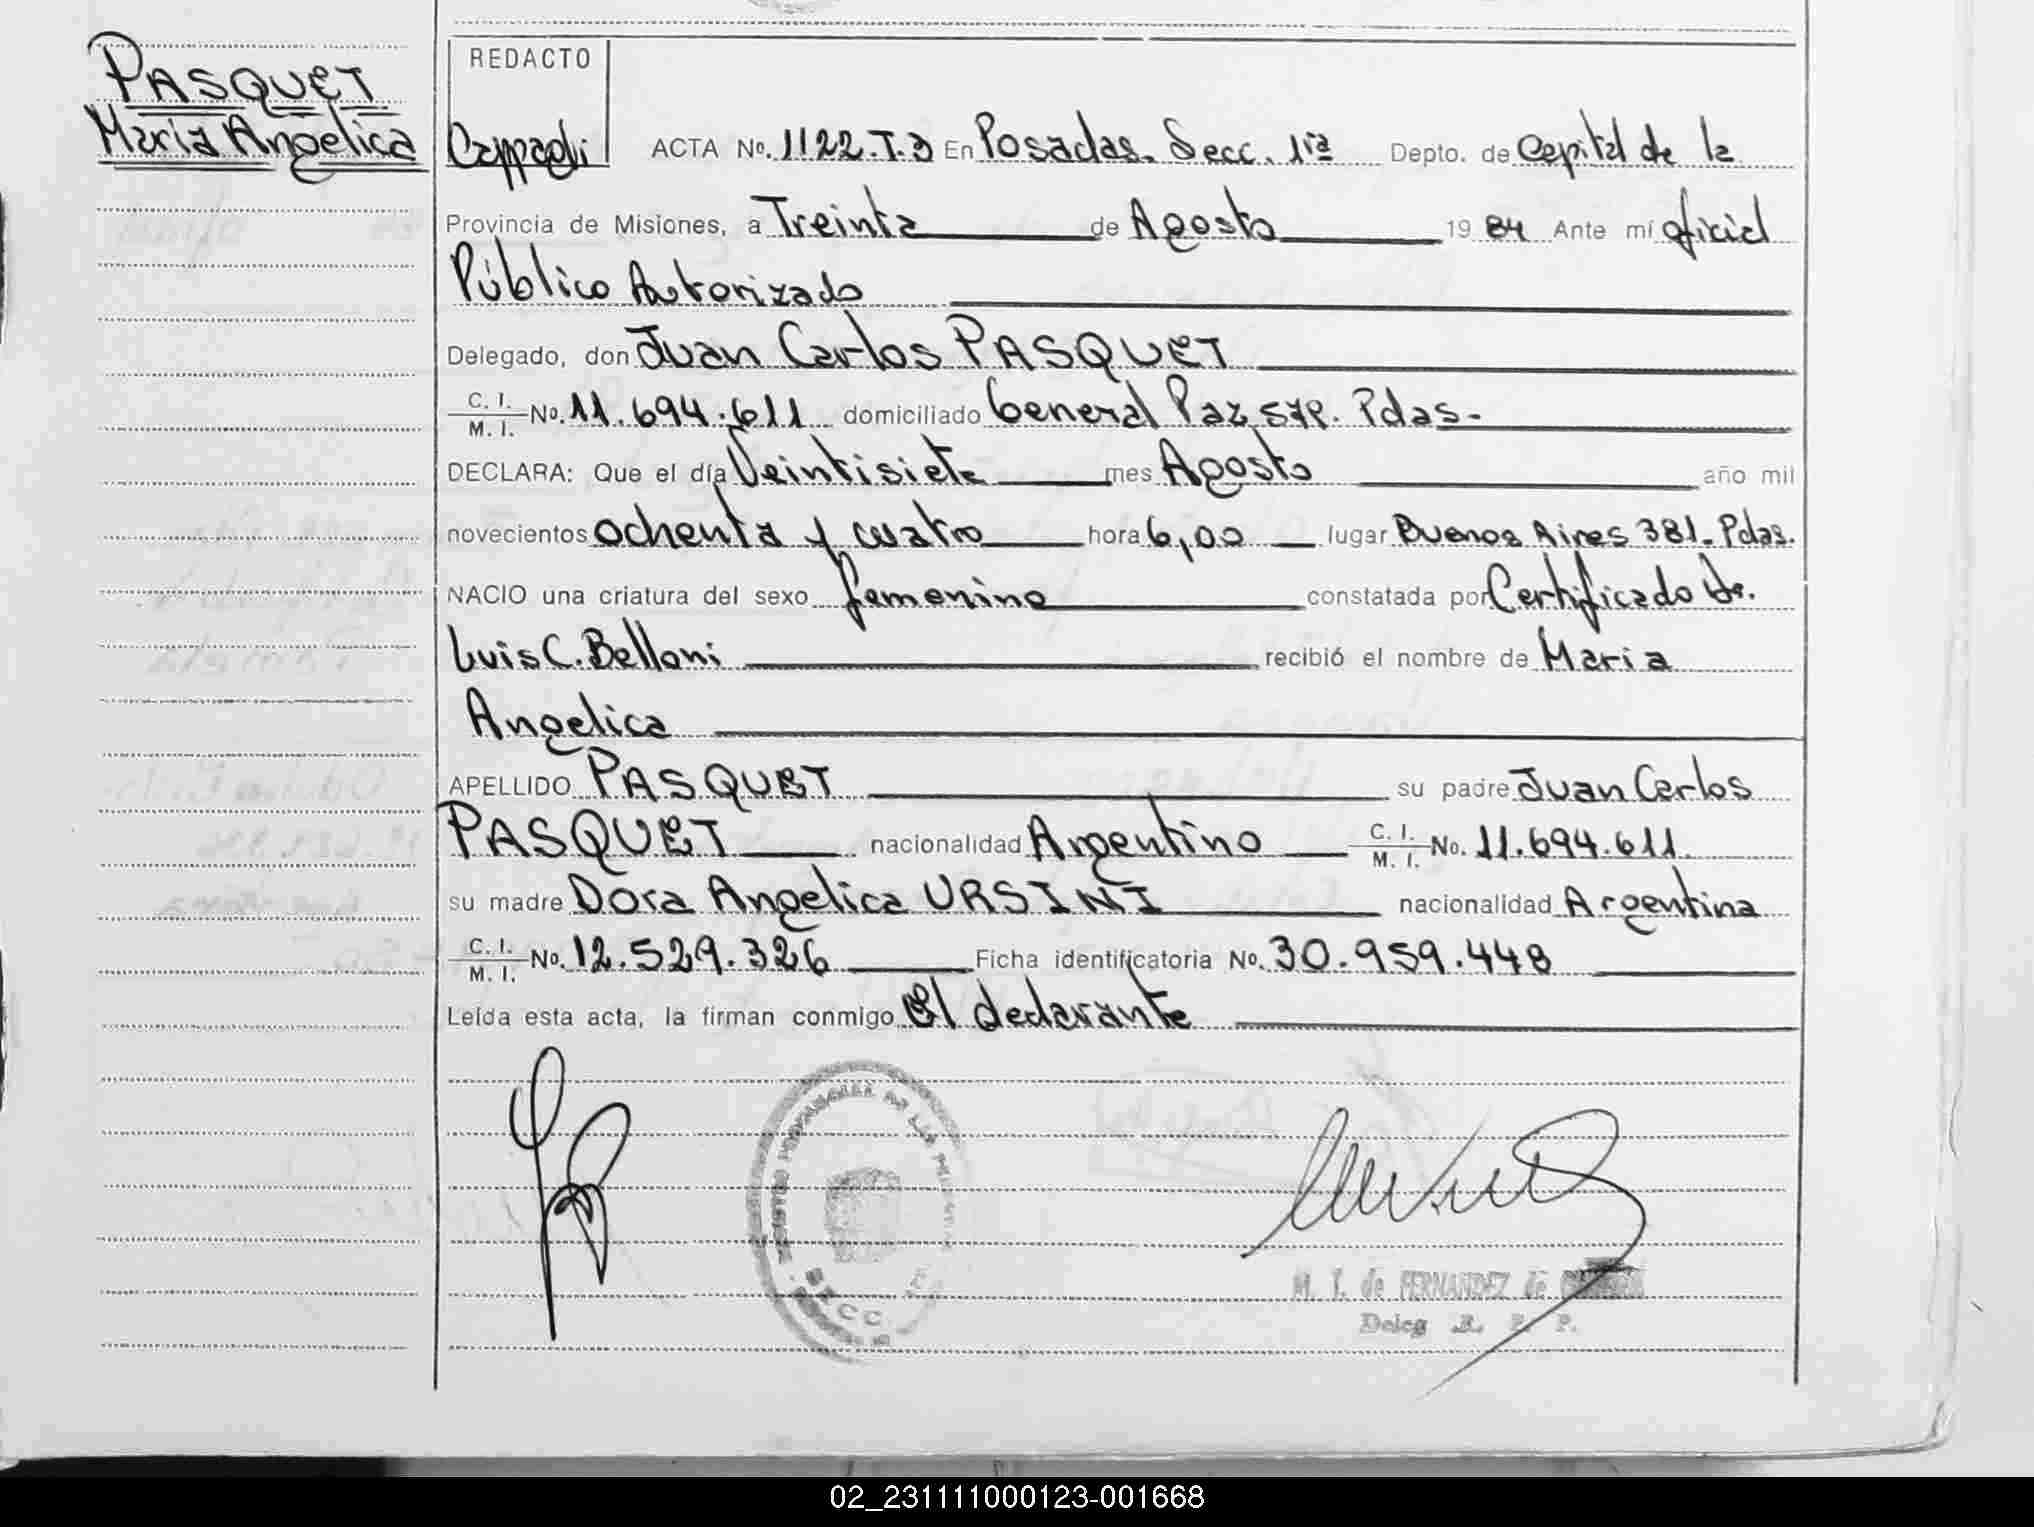 PASQUET
Maria Angelica
REDACTO
ACTA No. 1122.T.3 En Posadas. Secc. 1ra Depto. de Capital de la
Provincia de Misiones, a Treinta de Agosto 19 84 Ante mí oficial
Público Autorizado
Delegado, don Juan Carlos PASQUET
C. I.
M. I. No. 11.694.611 domiciliado General Paz S/N. Pdas.
DECLARA: Que el día Veintisiete mes Agosto año mil
novecientos ochenta y cuatro hora 6,00 lugar Buenos Aires 381. Pdas.
NACIO una criatura del sexo femenino constatada por Certificado Dr.
Luis C. Belloni recibió el nombre de Maria
Angelica
APELLIDO PASQUET su padre Juan Carlos
PASQUET nacionalidad Argentino C. I.
M. I. No. 11.694.611
su madre Dora Angelica URSINI nacionalidad Argentina
C. I.
M. I. No. 12.529.326 Ficha identificatoria No. 30.959.448
Leída esta acta, la firman conmigo el declarante
SECC
M. I. de FERNANDEZ de
Deleg R. P. P.
02_231111000123-001668